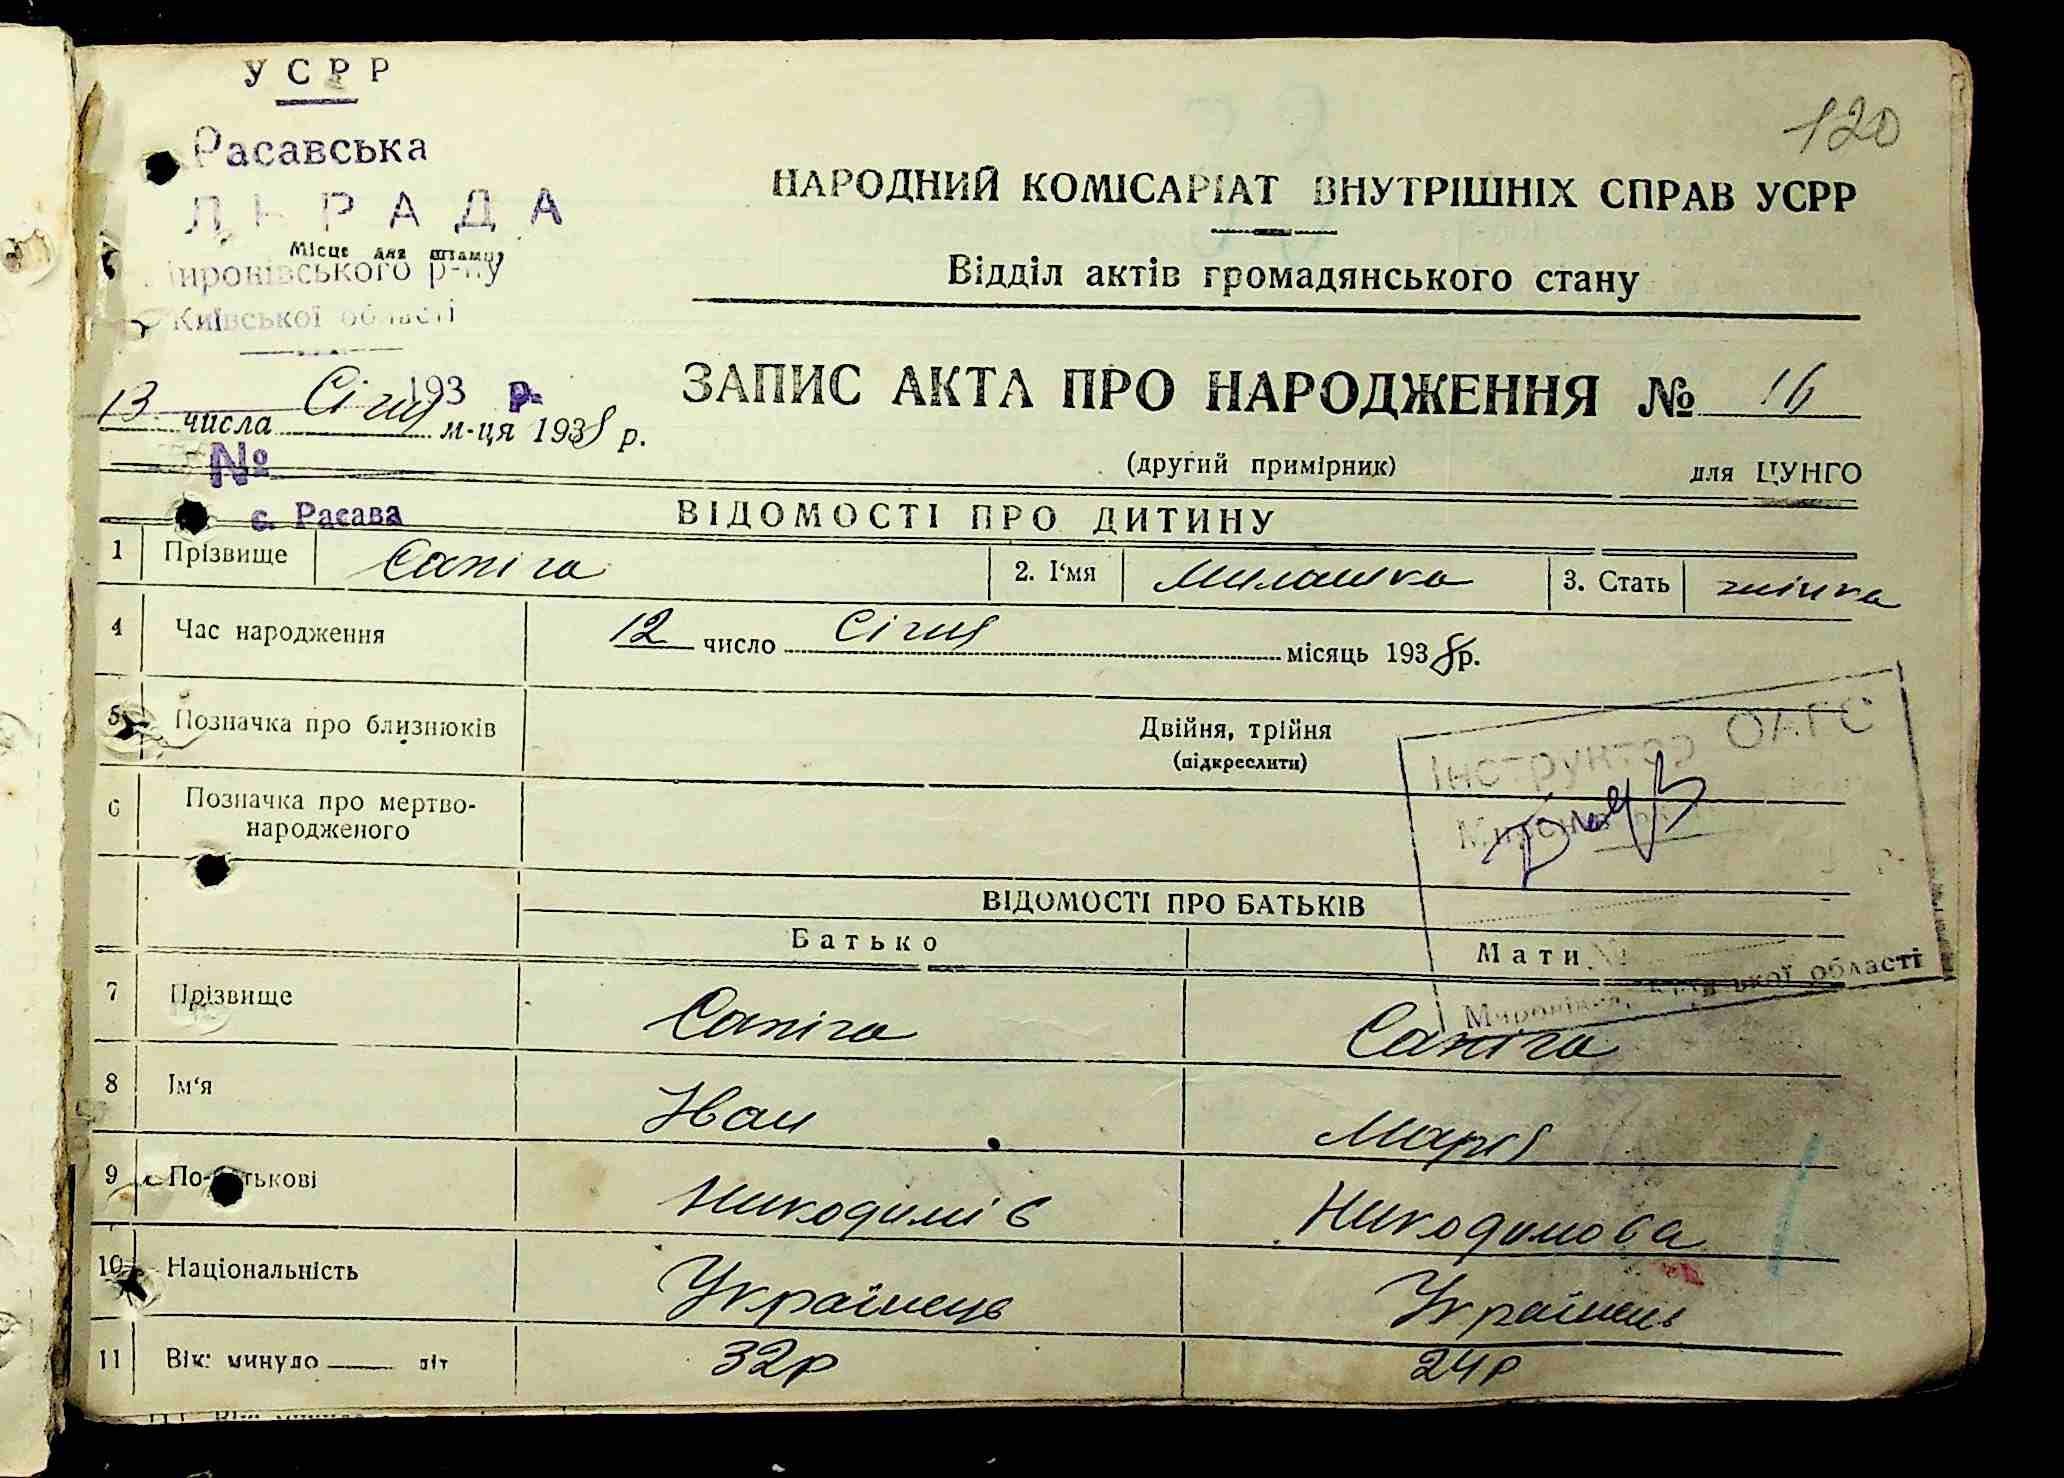 УСРР
120
Расавська
РАДА
Місце для штампу
р-ну
Київської області
НАРОДНИЙ КОМІСАРІАТ ВНУТРІШНІХ СПРАВ УСРР
Відділ актів громадянського стану
193 р.
13 числа Січня м-ця 1938 р.
ЗАПИС АКТА ПРО НАРОДЖЕННЯ № 16
№
(другий примірник) для ЦУНГО
с. Расава
ВІДОМОСТІ ПРО ДИТИНУ
1 Прізвище Сапіга 2. І'мя Милашка 3. Стать жінка
4 Час народження 12 число Січня місяць 1938 р.
5 Позначка про близнюків Двійня, трійня
(підкреслити)
Інструктор ОАГС
6 Позначка про мертво-
народженого
ВІДОМОСТІ ПРО БАТЬКІВ
Батько Мати
області
7 Прізвище Сапіга Сапіга
8 Ім'я Іван Марія
9 По-батькові Никодимів Никодимова
10 Національність Українець Українець
11 Вік: минуло літ 32р 24р